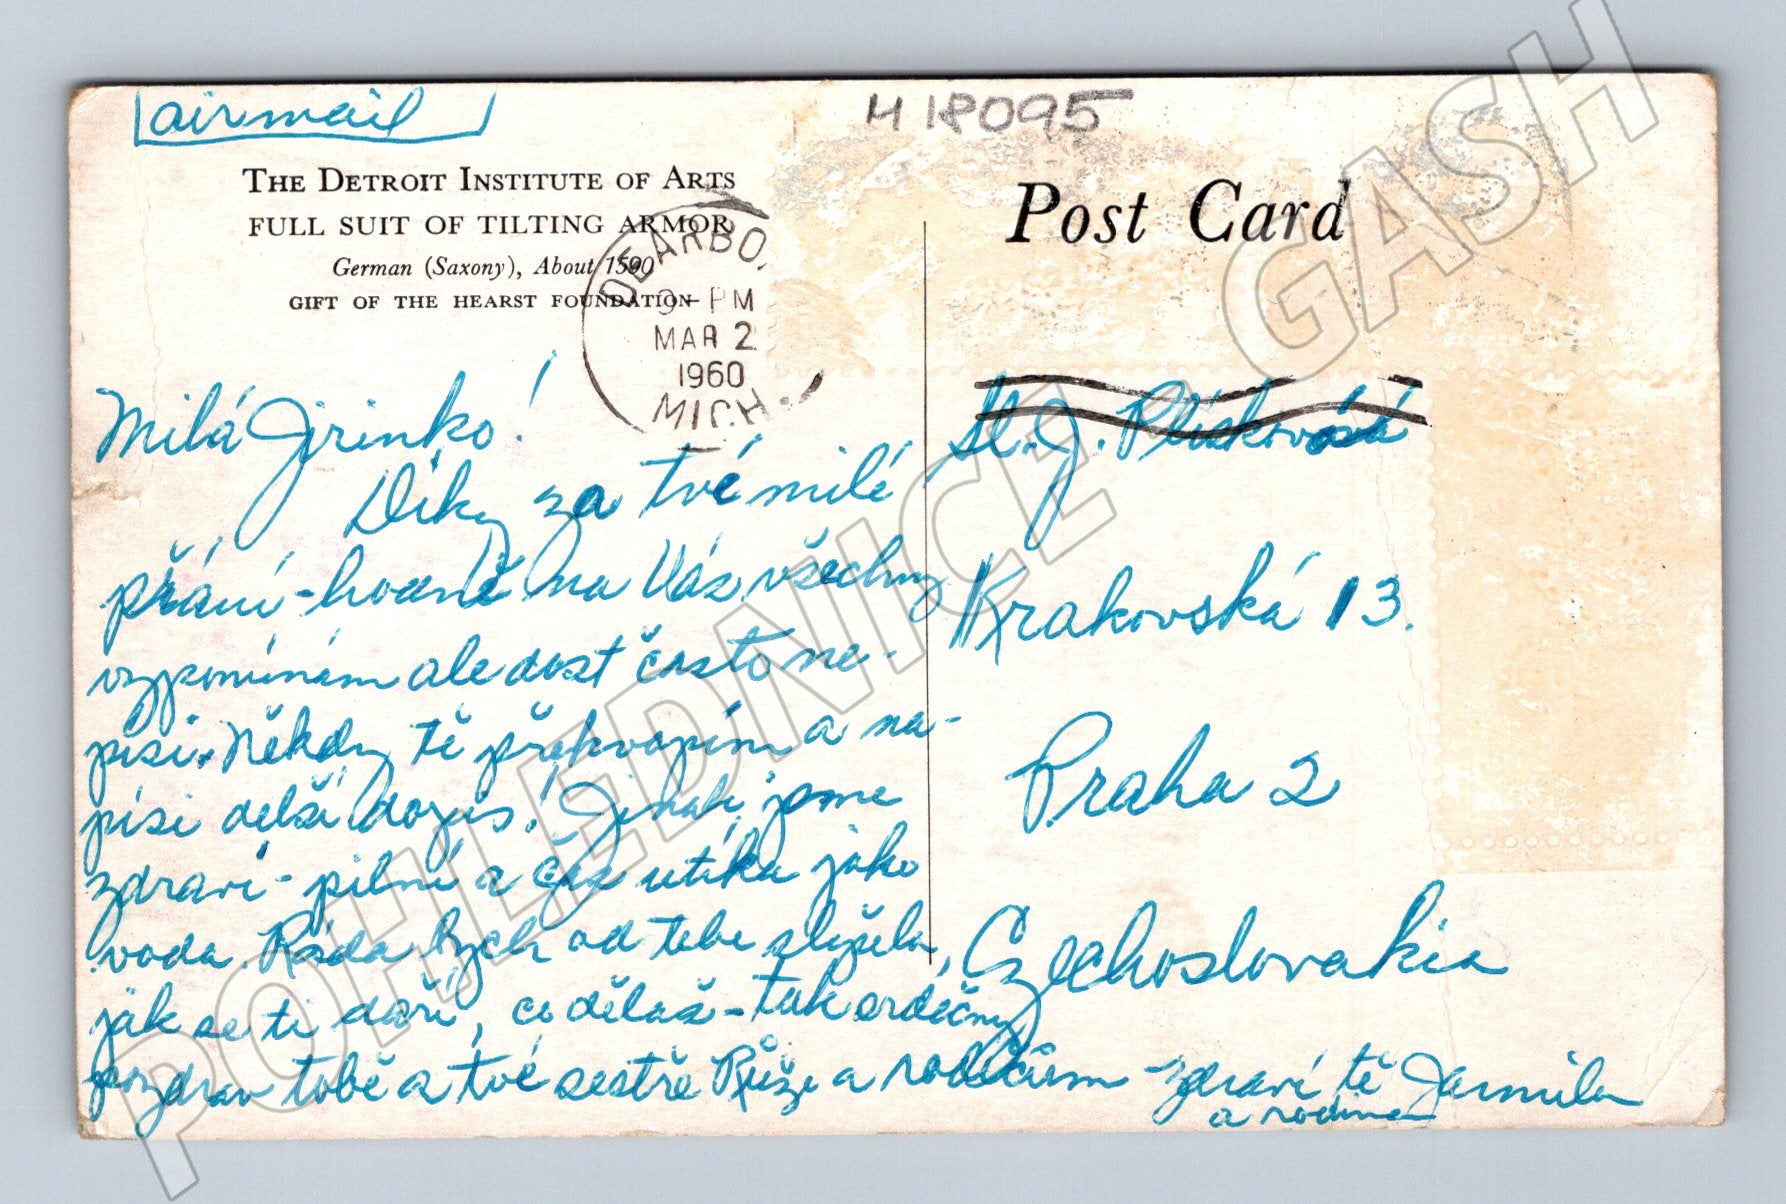 airmail
H 18095
THE DETROIT INSTITUTE OF ARTS
FULL SUIT OF TILTING ARMOR
German (Saxony), About 1590
GIFT OF THE HEARST FOUNDATION
Post Card
DEARBO
9- PM
MAR 2
1960
MICH.
Milá Jirinko!
Díky za tvé milé
přání - hodně na Vás všechny
vzpomínám ale dost často ne-
píši. Někdy tě překvapím a na-
píši delší dopis! Jinak jsme
zdraví - pilní a čas utíká jako
voda. Ráda bych od tebe slyšela,
jak se ti daří, co děláš - tak srdečný
pozdrav tobě a tvé sestře Růže a rodičům - zdraví tě Jarmila
a rodina
Sl. J. Plíšková
Krakovská 13.
Praha 2
Czechoslovakia
POHLEDNICE GASH